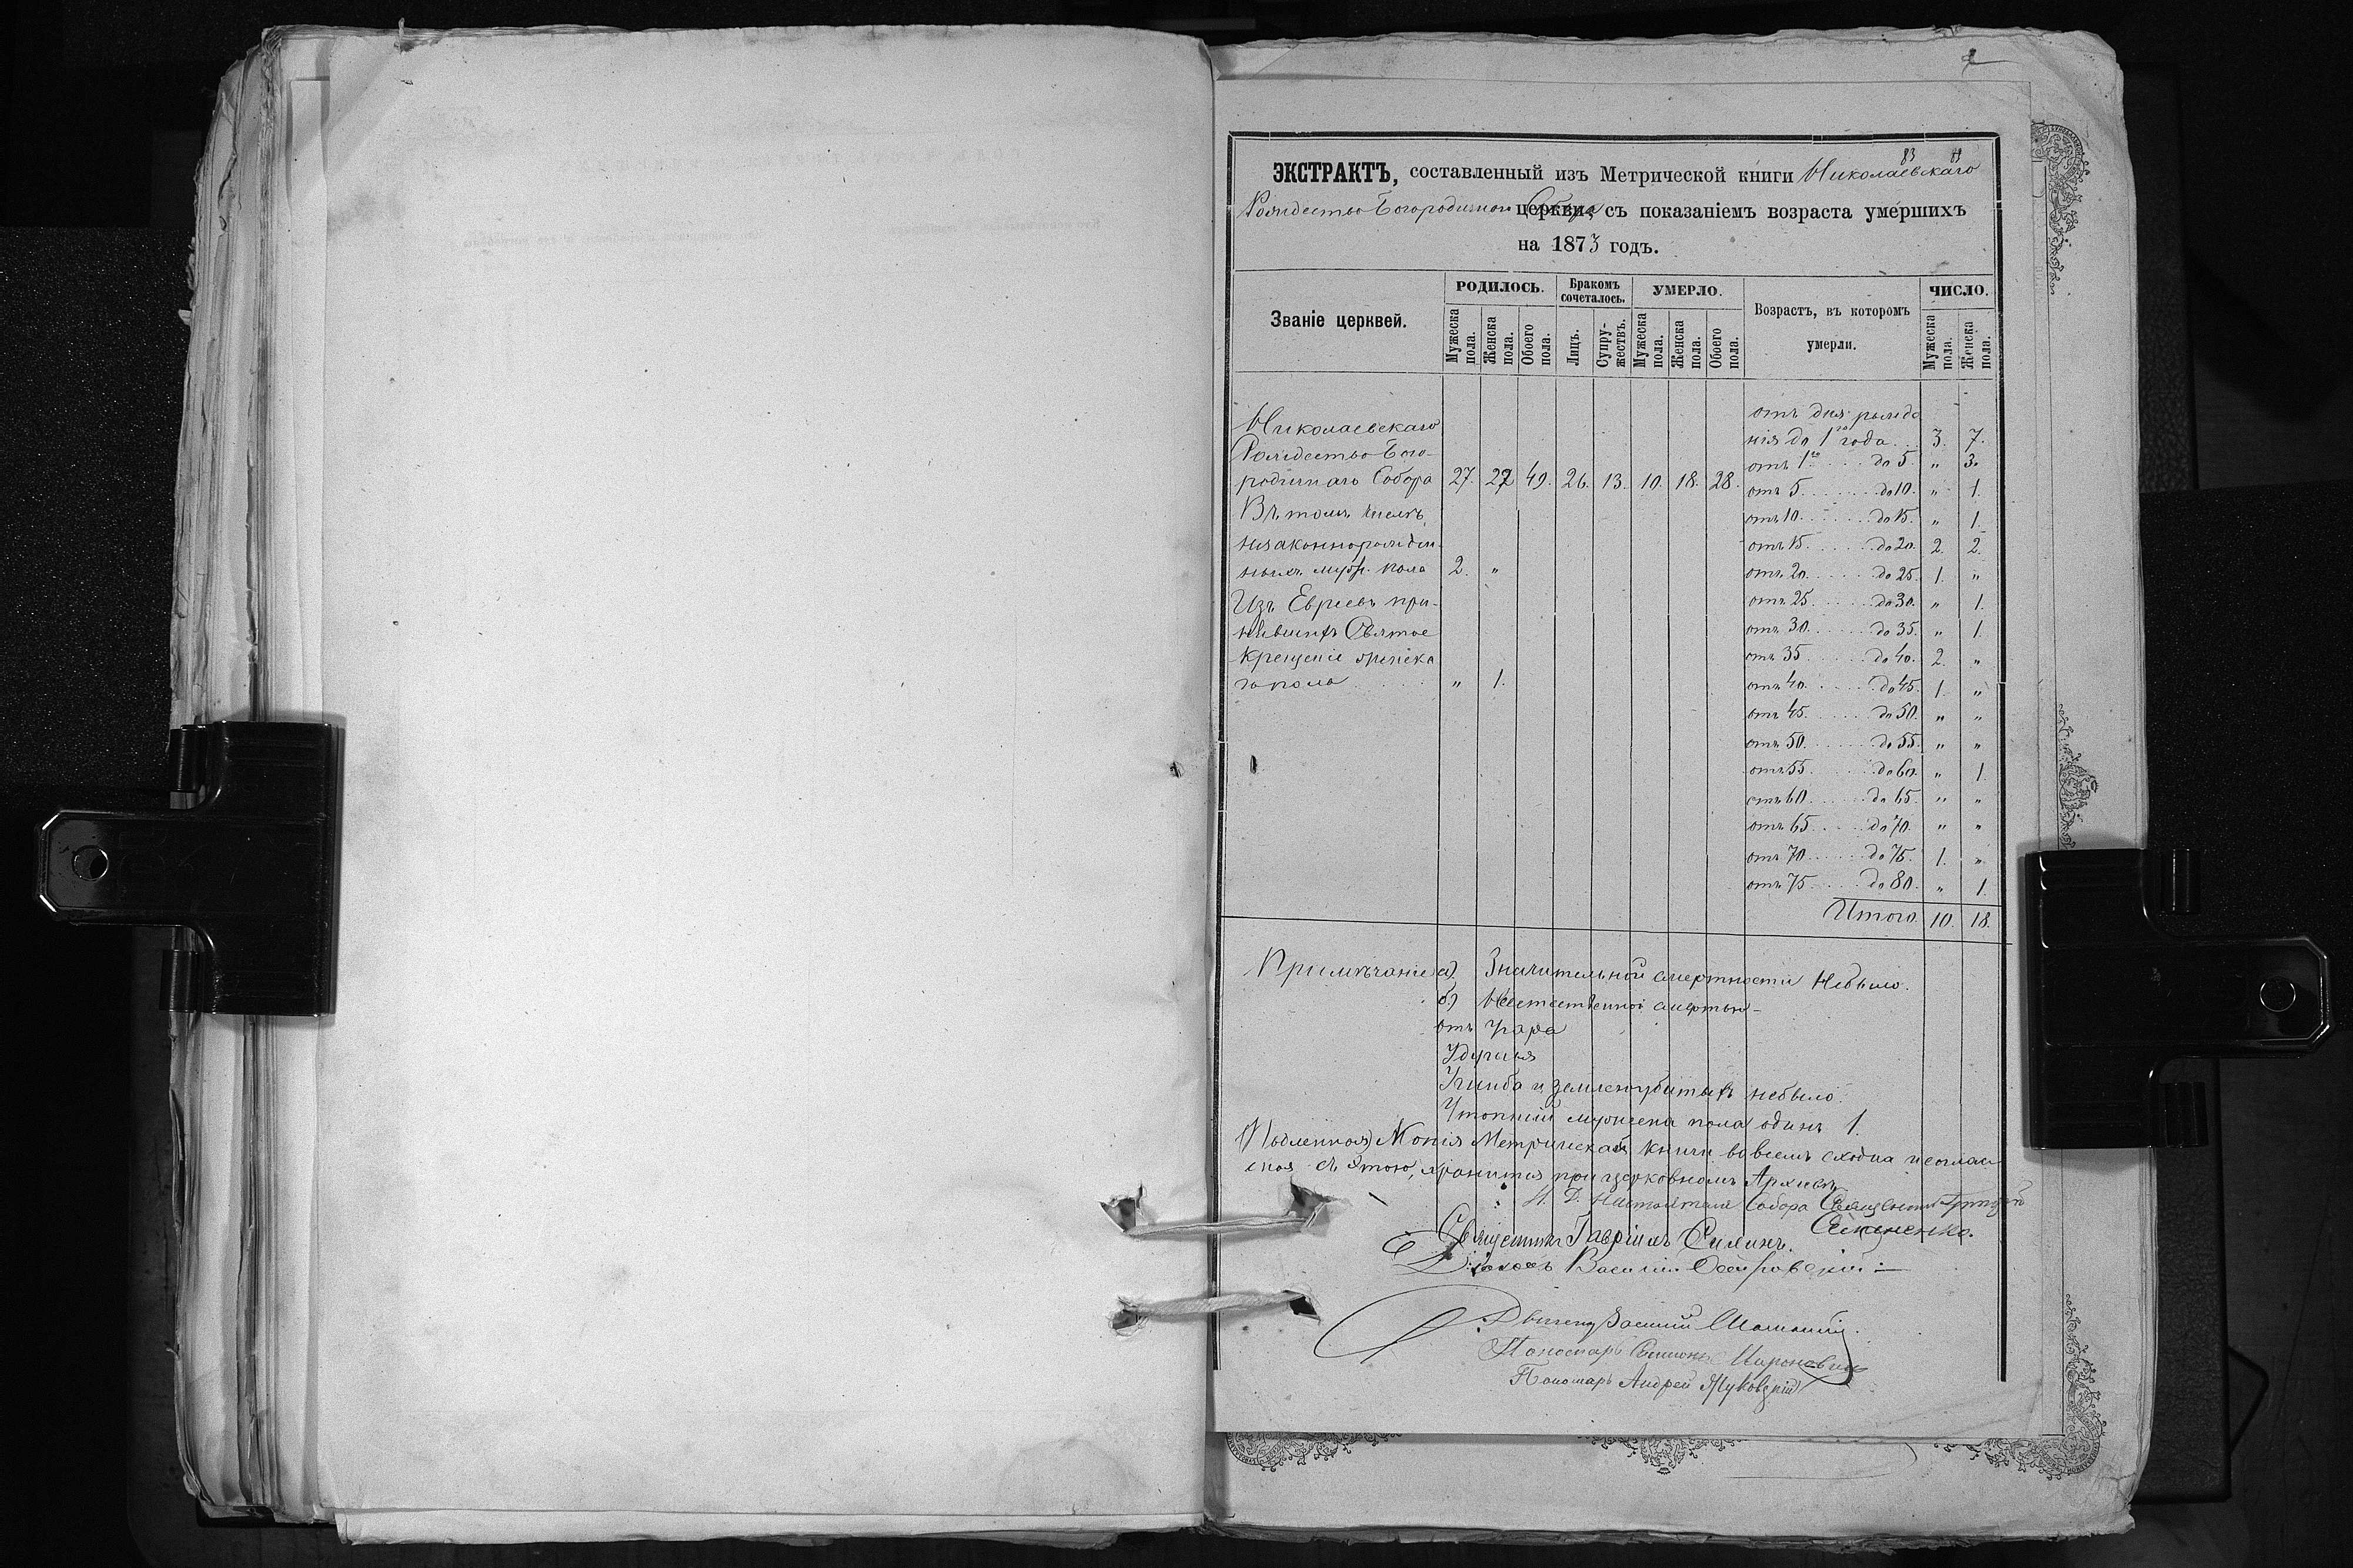 83
ЭКСТРАКТЪ, составленный изъ Метрической книги Николаевскаго
Рождество Богородичнаго Собора церкви съ показаніемъ возраста умершихъ
на 1873 годъ.
Званіе церквей. РОДИЛОСЬ. Бракомъ сочеталось. УМЕРЛО. Возрастъ, въ которомъ умерли. ЧИСЛО.
Мужеска пола. Женска пола. Обоего пола. Лицъ. Супружествъ. Мужеска пола. Женска пола. Обоего пола. Мужеска пола. Женска пола.
Николаевскаго
Рождество Бого-
родичнаго Собора 27. 22 49. 26. 13. 10. 18. 28.
Въ томъ числѣ
незаконнорожден-
ныхъ муж. пола 2. "
Изъ Евреевъ при-
нявшихъ Святое
Крещеніе женска
го пола " 1.
отъ дня рожде
нія до 1го года... 3. 7.
отъ 1го .... до 5. " 3.
отъ 5 ...... до 10. " 1.
отъ 10. ..... до 15. " 1.
отъ 15. ..... до 20. 2. 2.
отъ 20. ..... до 25. 1. "
отъ 25 ...... до 30. " 1.
отъ 30. ..... до 35. " 1.
отъ 35 ...... до 40. 2. "
отъ 40. ..... до 45. 1. "
отъ 45. ..... до 50. " "
отъ 50. ..... до 55. " "
отъ 55. ..... до 60. " 1.
отъ 60. ..... до 65. " "
отъ 65 ..... до 70. " "
отъ 70 ..... до 75. 1. "
отъ 75 ..... до 80. " 1.
Итого. 10. 18.
Примѣчаніе а). Значительной смертности небыло.
б) Неестественной смертью
отъ Угара
Удушья
Ушиба и землею убитыхъ небыло.
Утопшій мужеска пола одинъ 1.
Подленная Копія Метрической книги во всемъ сходна и соглас
ная съ этою, хранится при церковномъ Архивѣ
И. Д. Настоятеля Собора Священникъ
Семененко.
Священникъ Гавріилъ Силинъ.
Діаконъ Василій
Василій
Пономарь Симеонъ Мироновичъ
Пономарь Андрей Жуковскій